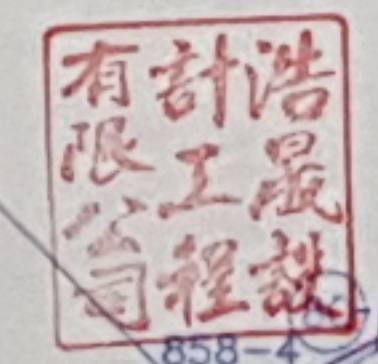 浩晟設
計工程
有限公司
858-4